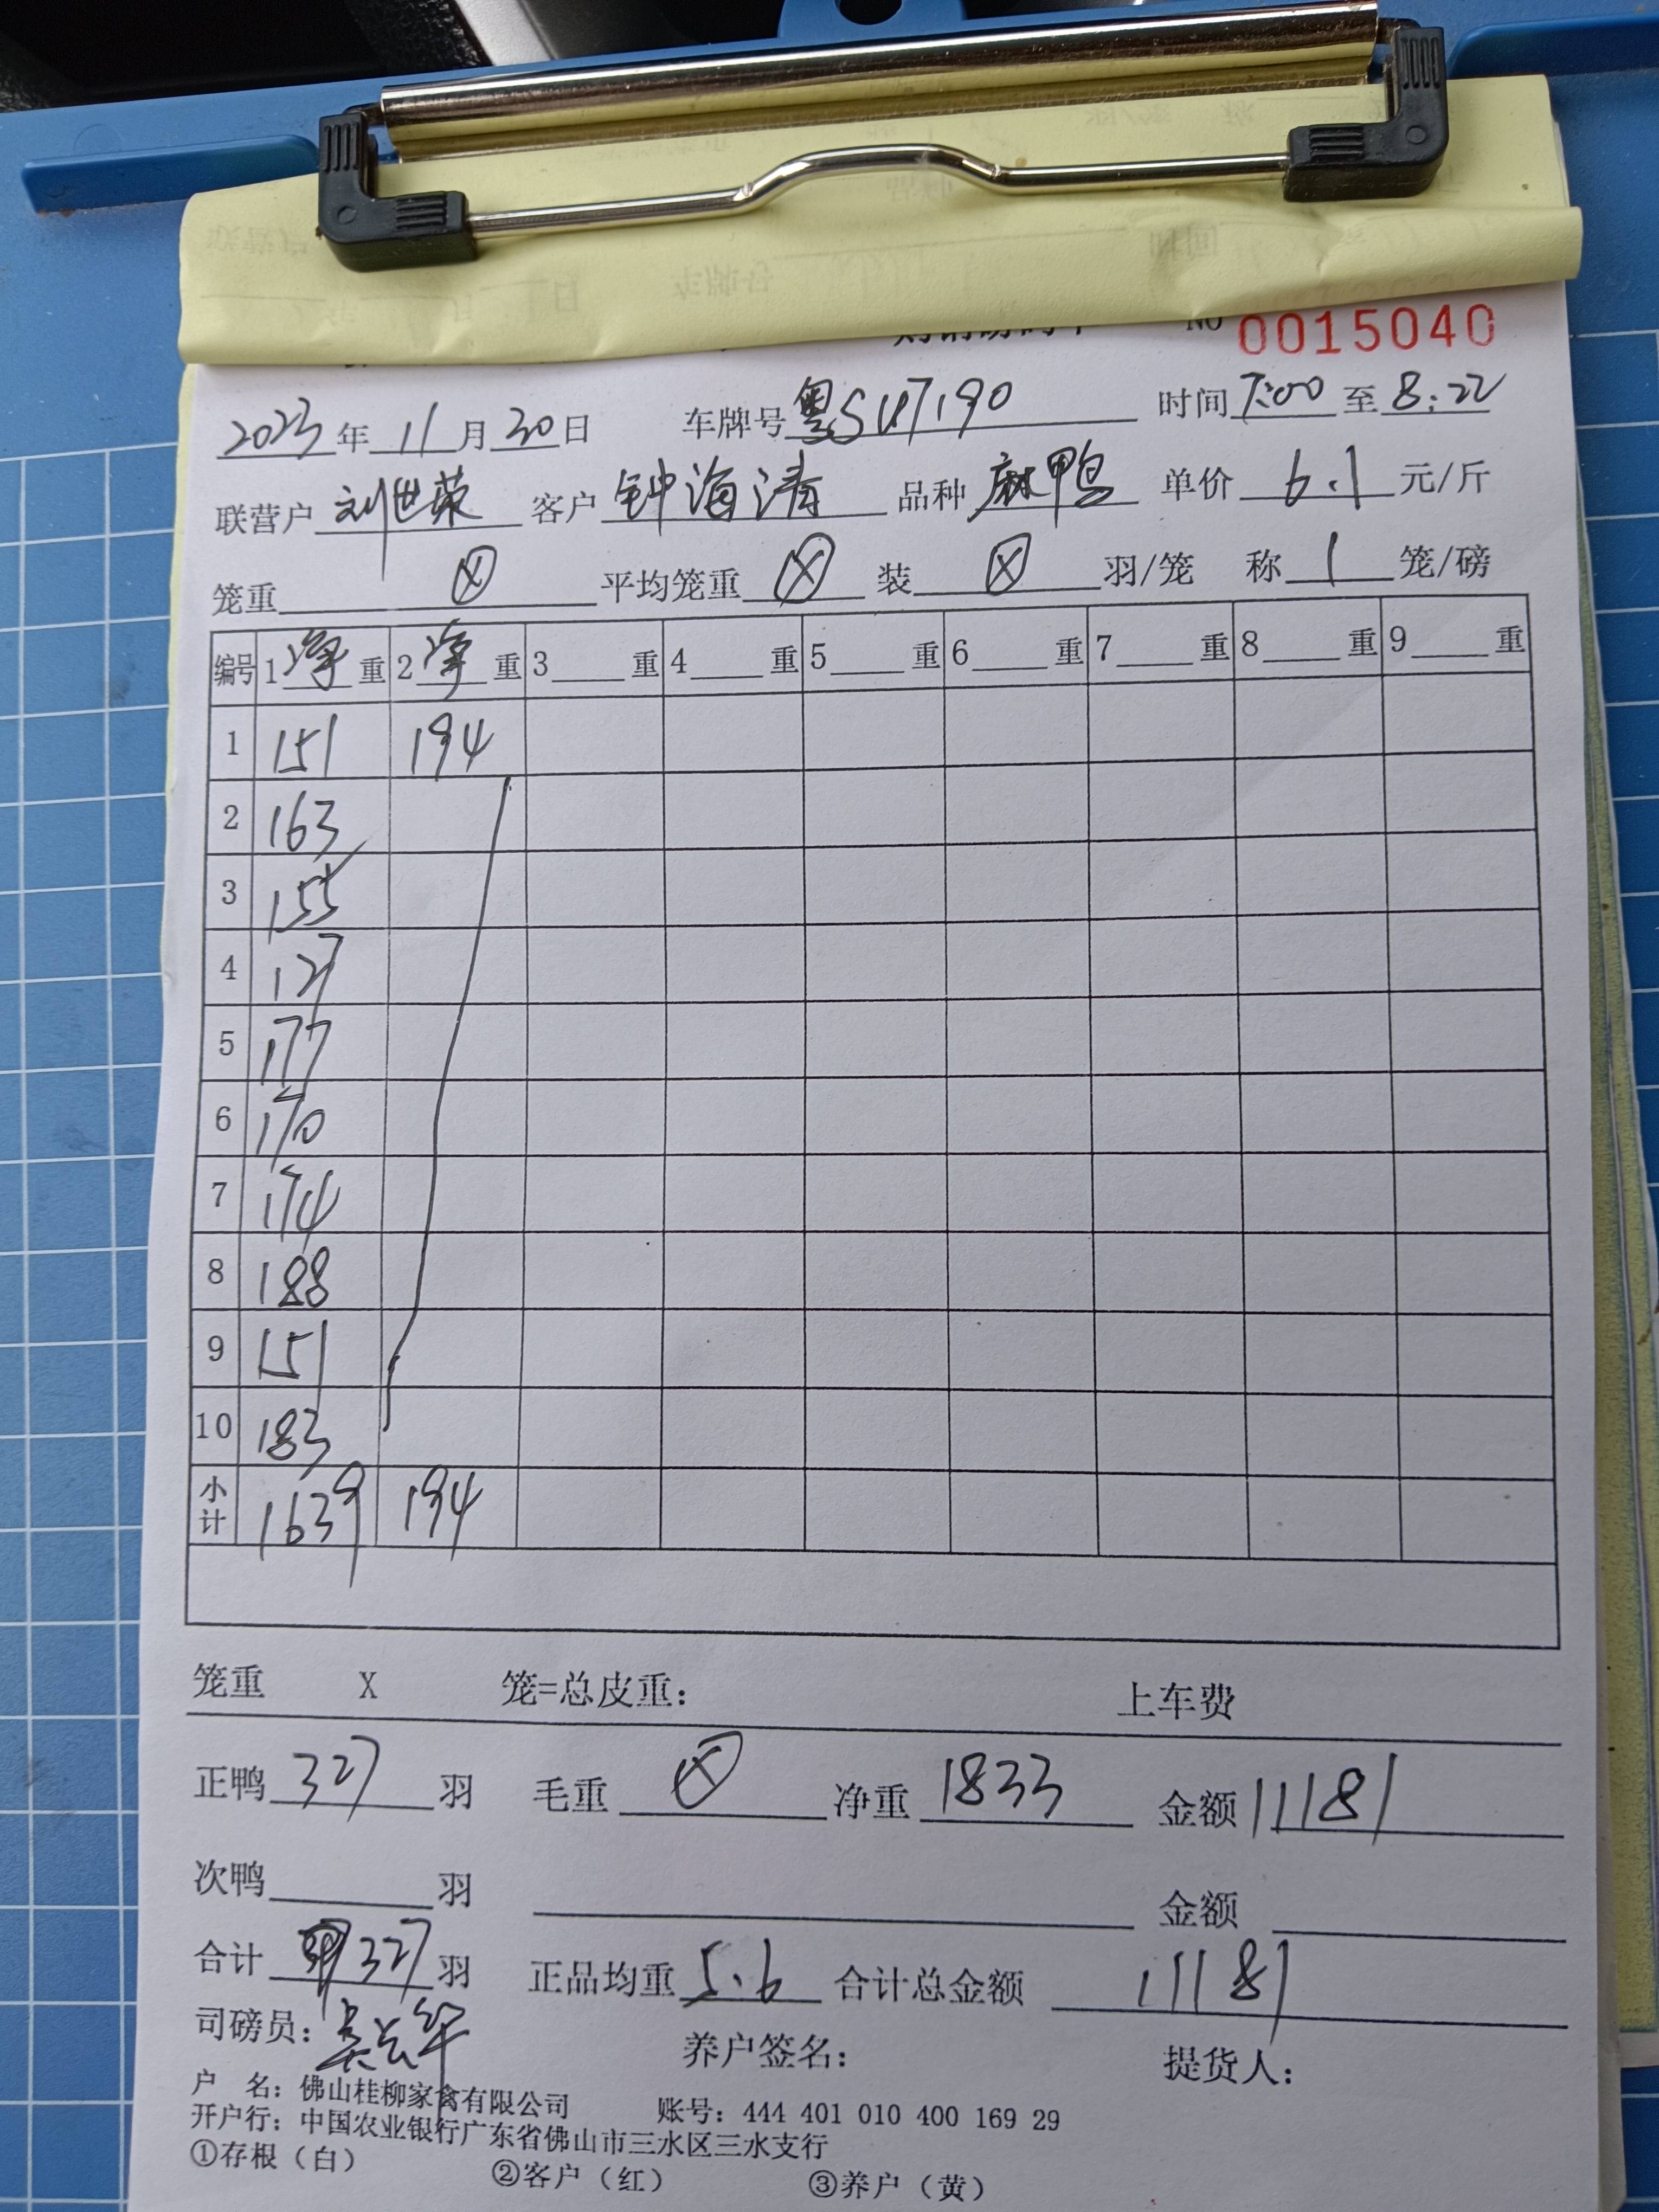 NO 0015040
2023年11月30日 车牌号粤SU7190 时间7:00至8:22
联营户刘世荣 客户钟海清 品种麻鸭 单价6.1元/斤
笼重ⓧ平均笼重ⓧ装ⓧ羽/笼 称1笼/磅
编号 1净重 2净重 3____重 4____重 5____重 6____重 7____重 8____重 9____重
1 151 194
2 163
3 155
4 127
5 177
6 170
7 174
8 188
9 151
10 183
小计 1639 194
笼重 X 笼=总皮重: 上车费
正鸭327羽 毛重ⓧ净重1833 金额11181
次鸭____羽 金额
合计327羽 正品均重5.6合计总金额11181
司磅员: 养户签名: 提货人:
户 名: 佛山桂柳家禽有限公司 账号: 444 401 010 400 169 29
开户行: 中国农业银行广东省佛山市三水区三水支行
①存根(白) ②客户(红) ③养户(黄)